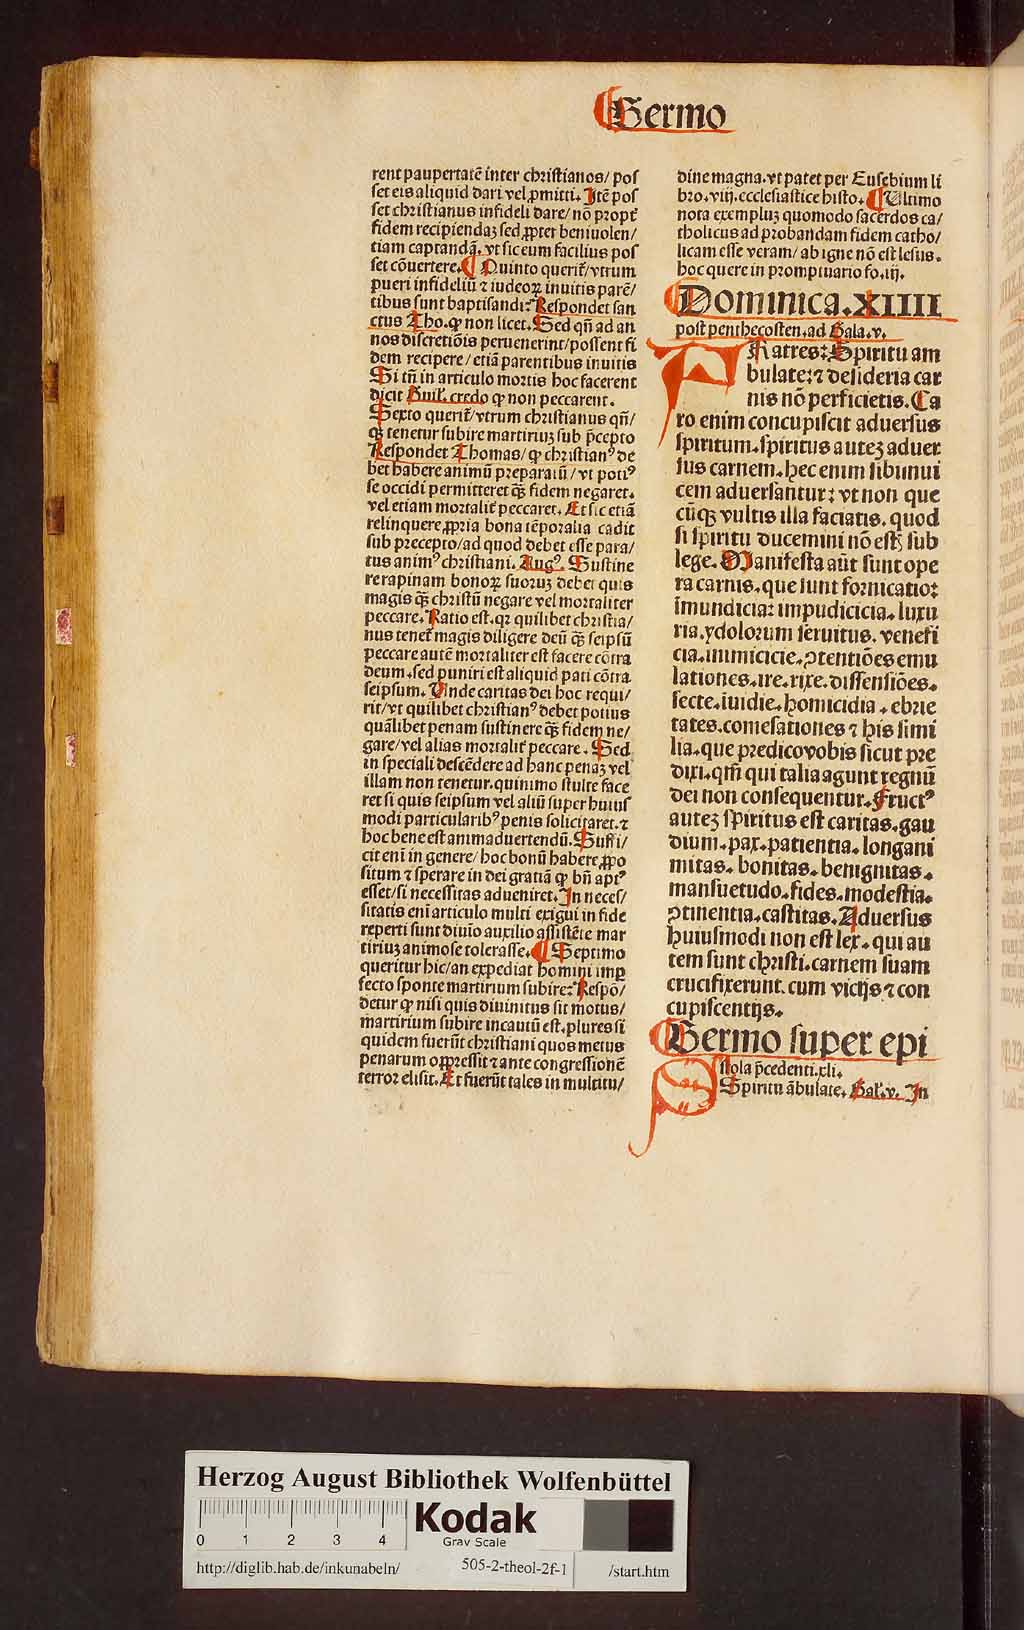 Sermo
rent paupertatē inter christianos/ pos
set eis aliquid dari vel ꝓmitti. Itē pos
set christianus infideli dare/ nō propt̄
fidem recipiendaꝫ sed ꝓpter beniuolen/
tiam captandā. vt sic eum facilius pos
set cōuertere. ¶ Quinto querit̄/ vtrum
pueri infideliū ⁊ iudeoꝝ inuitis parē/
tibus sunt baptisandi: Respondet san
ctus Tho. ꝙ non licet. Sed qn̄ ad an
nos discretiōis peruenerint/ possent fi
dem recipere/ etiā parentibus inuitis
Si tn̄ in articulo mortis hoc facerent
dicit Guil. credo ꝙ non peccarent.
Sexto querit̄/ vtrum christianus qn̄/
qꝫ tenetur subire martiriuꝫ sub p̄cepto
Respondet Thomas/ ꝙ christianꝰ de
bet habere animū preparatū/ vt potiꝰ
se occidi permitteret qꝫ̄ fidem negaret.
vel etiam mortalit̄ peccaret. Et sic etiā
relinquere ꝓpria bona tēporalia cadit
sub precepto/ ad quod debet esse para/
tus animꝰ christiani. Augꝰ. Sustine
re rapinam bonoꝝ suoruꝫ debet quis
magis qꝫ̄ christū negare vel mortaliter
peccare. Ratio est. qꝛ quilibet christia/
nus tenet̄ magis diligere deū qꝫ̄ seipsū
peccare autē mortaliter est facere cōtra
deum. sed puniri est aliquid pati cōtra
seipsum. Unde caritas dei hoc requi/
rit/ vt quilibet christianꝰ debet potius
quālibet penam sustinere qꝫ̄ fidem ne/
gare/ vel alias mortalit̄ peccare. Sed
in speciali descēdere ad hanc penaꝫ vel
illam non tenetur. quinimo stulte face
ret si quis seipsum vel aliū super huius
modi particularibꝰ penis solicitaret. ⁊
hoc bene est animaduertendū. Suffi/
cit enī in genere/ hoc bonū habere ꝓpo
situm ⁊ sperare in dei gratiā ꝙ bn̄ aptꝰ
esset/ si necessitas adueniret. In neces/
sitatis enī articulo multi exigui in fide
reperti sunt diuio auxilio assistēte mar
tiriuꝫ animose tolerasse. ¶ Septimo
queritur hic/ an expediat homini imp
fecto sponte martirium subire: Respō/
detur ꝙ nisi quis diuinitus sit motus/
martirium subire incautū est. plures si
quidem fuerūt christiani quos metus
penarum oppressit ⁊ ante congressionē
terror elisit. Et fuerūt tales in multitu/
dine magna. vt patet per Eusebium li
bro. viij. ecclesiastice histo. ¶ Ultimo
nota exempluꝫ quomodo sacerdos ca/
tholicus ad probandam fidem catho/
licam esse veram/ ab igne nō est lesus.
hoc quere in promptuario fo. iij.
Dominica. XIIII
post penthecosten. ad Gala. v.
Fratres: Spiritu am
bulate: ⁊ desideria car
nis nō perficietis. Ca
ro enim concupiscit aduersus
spiritum. spiritus auteꝫ aduer
sus carnem. hec enim sibi inui
cem aduersantur: vt non que
cūqꝫ vultis illa faciatis. quod
si spiritu ducemini nō estꝭ sub
lege. Manifesta aūt sunt ope
ra carnis. que sunt fornicatio:
imundicia: impudicicia. luxu
ria. ydolorum seruitus. venefi
cia. inimicicie. ꝯtentiōes emu
lationes. ire. rixe. dissensiōes.
secte. īuidie. homicidia. ebrie
tates. comesationes ⁊ his simi
lia. que predico vobis sicut pre
dixi. qm̄ qui talia agunt regnū
dei non consequentur. Fructꝰ
auteꝫ spiritus est caritas. gau
dium. pax. patientia. longani
mitas. bonitas. benignitas.
mansuetudo. fides. modestia.
ꝯtinentia. castitas. Aduersus
huiusmodi non est lex. qui au
tem sunt christi. carnem suam
crucifixerunt. cum vicijs ⁊ con
cupiscentijs.
Sermo super epi
stola p̄cedenti. xli.
Spiritu ābulate. Gal. v. In
Herzog August Bibliothek Wolfenbüttel
0 1 2 3 4
Kodak
Gray Scale
http://diglib.hab.de/inkunabeln/
505-2-theol-2f-1
/start.htm